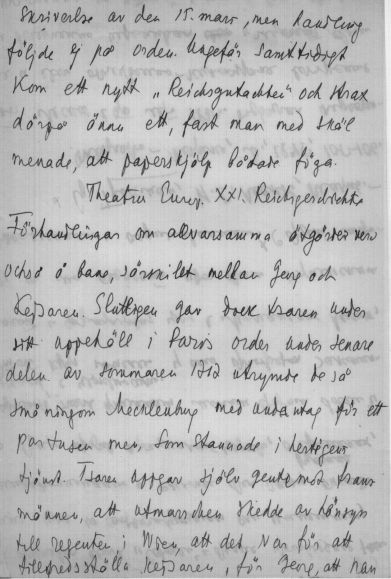 skrivelse av den 15. mars, men handling
följde ej på orden. Ungefär samtidigt
kom ett nytt „Reichsgutachten" och strax
därpå ännu ett, fast man med skäl
menade, att papershjälp båtade föga.
Theatru Europ. XXI. Reichsgeschichte
Förhandlingar om allvarsamma åtgärder voro
också å bane, särskilt mellan Georg och
Kejsaren. Slutligen gav dock tsaren under
sitt uppehåll i Paris order under senare
delen av sommaren 1717 utrymde de så
småningom Mecklenburg med undantag för ett
par tusen men, som stannade i hertigens
tjänst. Tsaren uppgav själv gentemot frans
männen, att utmarschen skedde av hänsyn
till regenten i Wien, att det var för att
tillfredsställa kejsaren, för Georg, att han